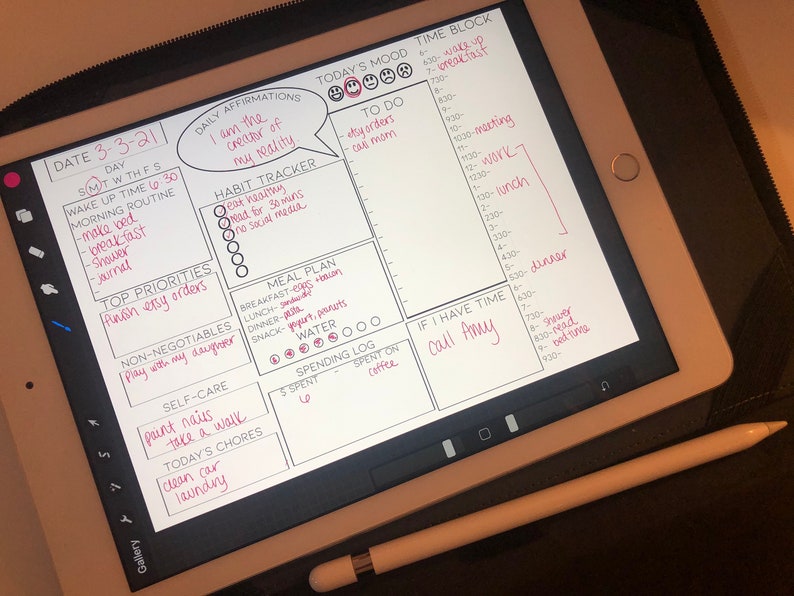 DATE 3-3-21
DAY
S M T W TH F S
WAKE UP TIME 6:30
MORNING ROUTINE
- make bed
- breakfast
- shower
- journal
TOP PRIORITIES
finish etsy orders
NON-NEGOTIABLES
play with my daughter
SELF-CARE
paint nails
take a walk
TODAY'S CHORES
clean car
laundry
DAILY AFFIRMATIONS
I am the
creator of
my reality
HABIT TRACKER
eat healthy
read for 30 mins
no social media
MEAL PLAN
BREAKFAST- eggs + bacon
LUNCH- sandwich
DINNER- pasta
SNACK- yogurt, peanuts
WATER
SPENDING LOG
$ SPENT - SPENT ON
6 coffee
TODAY'S MOOD
TO DO
- etsy orders
- call mom
IF I HAVE TIME
call Amy
TIME BLOCK
6-
630- wake up
7- breakfast
730-
8-
830-
9-
930-
10-
1030- meeting
11-
1130-
12- work
1230-
1-
130- lunch
2-
230-
3-
330-
4-
430-
5-
530- dinner
6-
630-
7-
730-
8- shower
830- read
9- bedtime
930-
Gallery